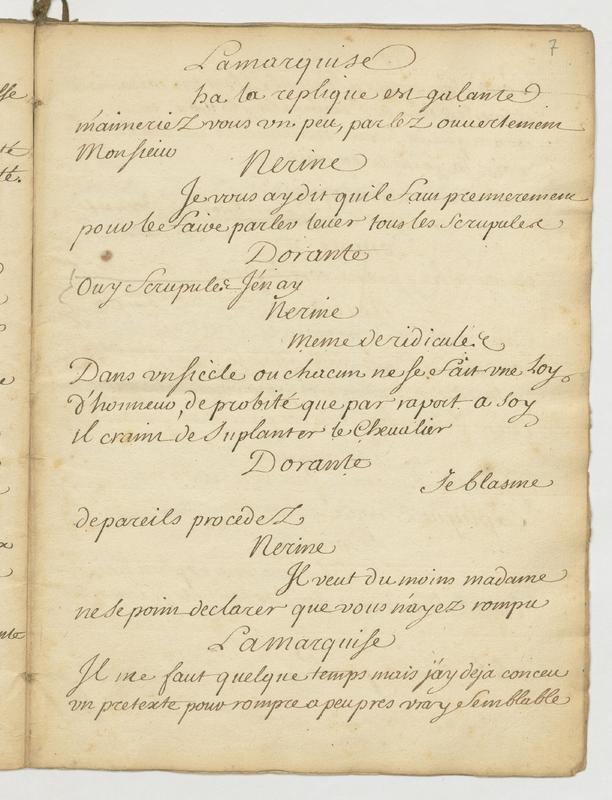 7
Lamarquise
ha la replique est galante
m'aimeriez vous vn peu, parlez ouuertement
Monsieur
Nerine
Je vous ay dit qu'il faut premierement
pour le faire parler leuer tous les scrupules
Dorante
Ouy scrupules J'en ay
Nerine
meme de ridicules
Dans vn siécle ou chacun ne se fait vne Loy
d'honneur, de probité que par raport a soy
il craint de suplanter le Cheualier
Dorante
Je blasme
de pareils procedez
Nerine
Il veut du moins madame
ne se point declarer que vous n'ayez rompu
Lamarquise
Il me faut quelque temps mais j'ay deja conceu
vn pretexte pour rompre a peu pres vray semblable